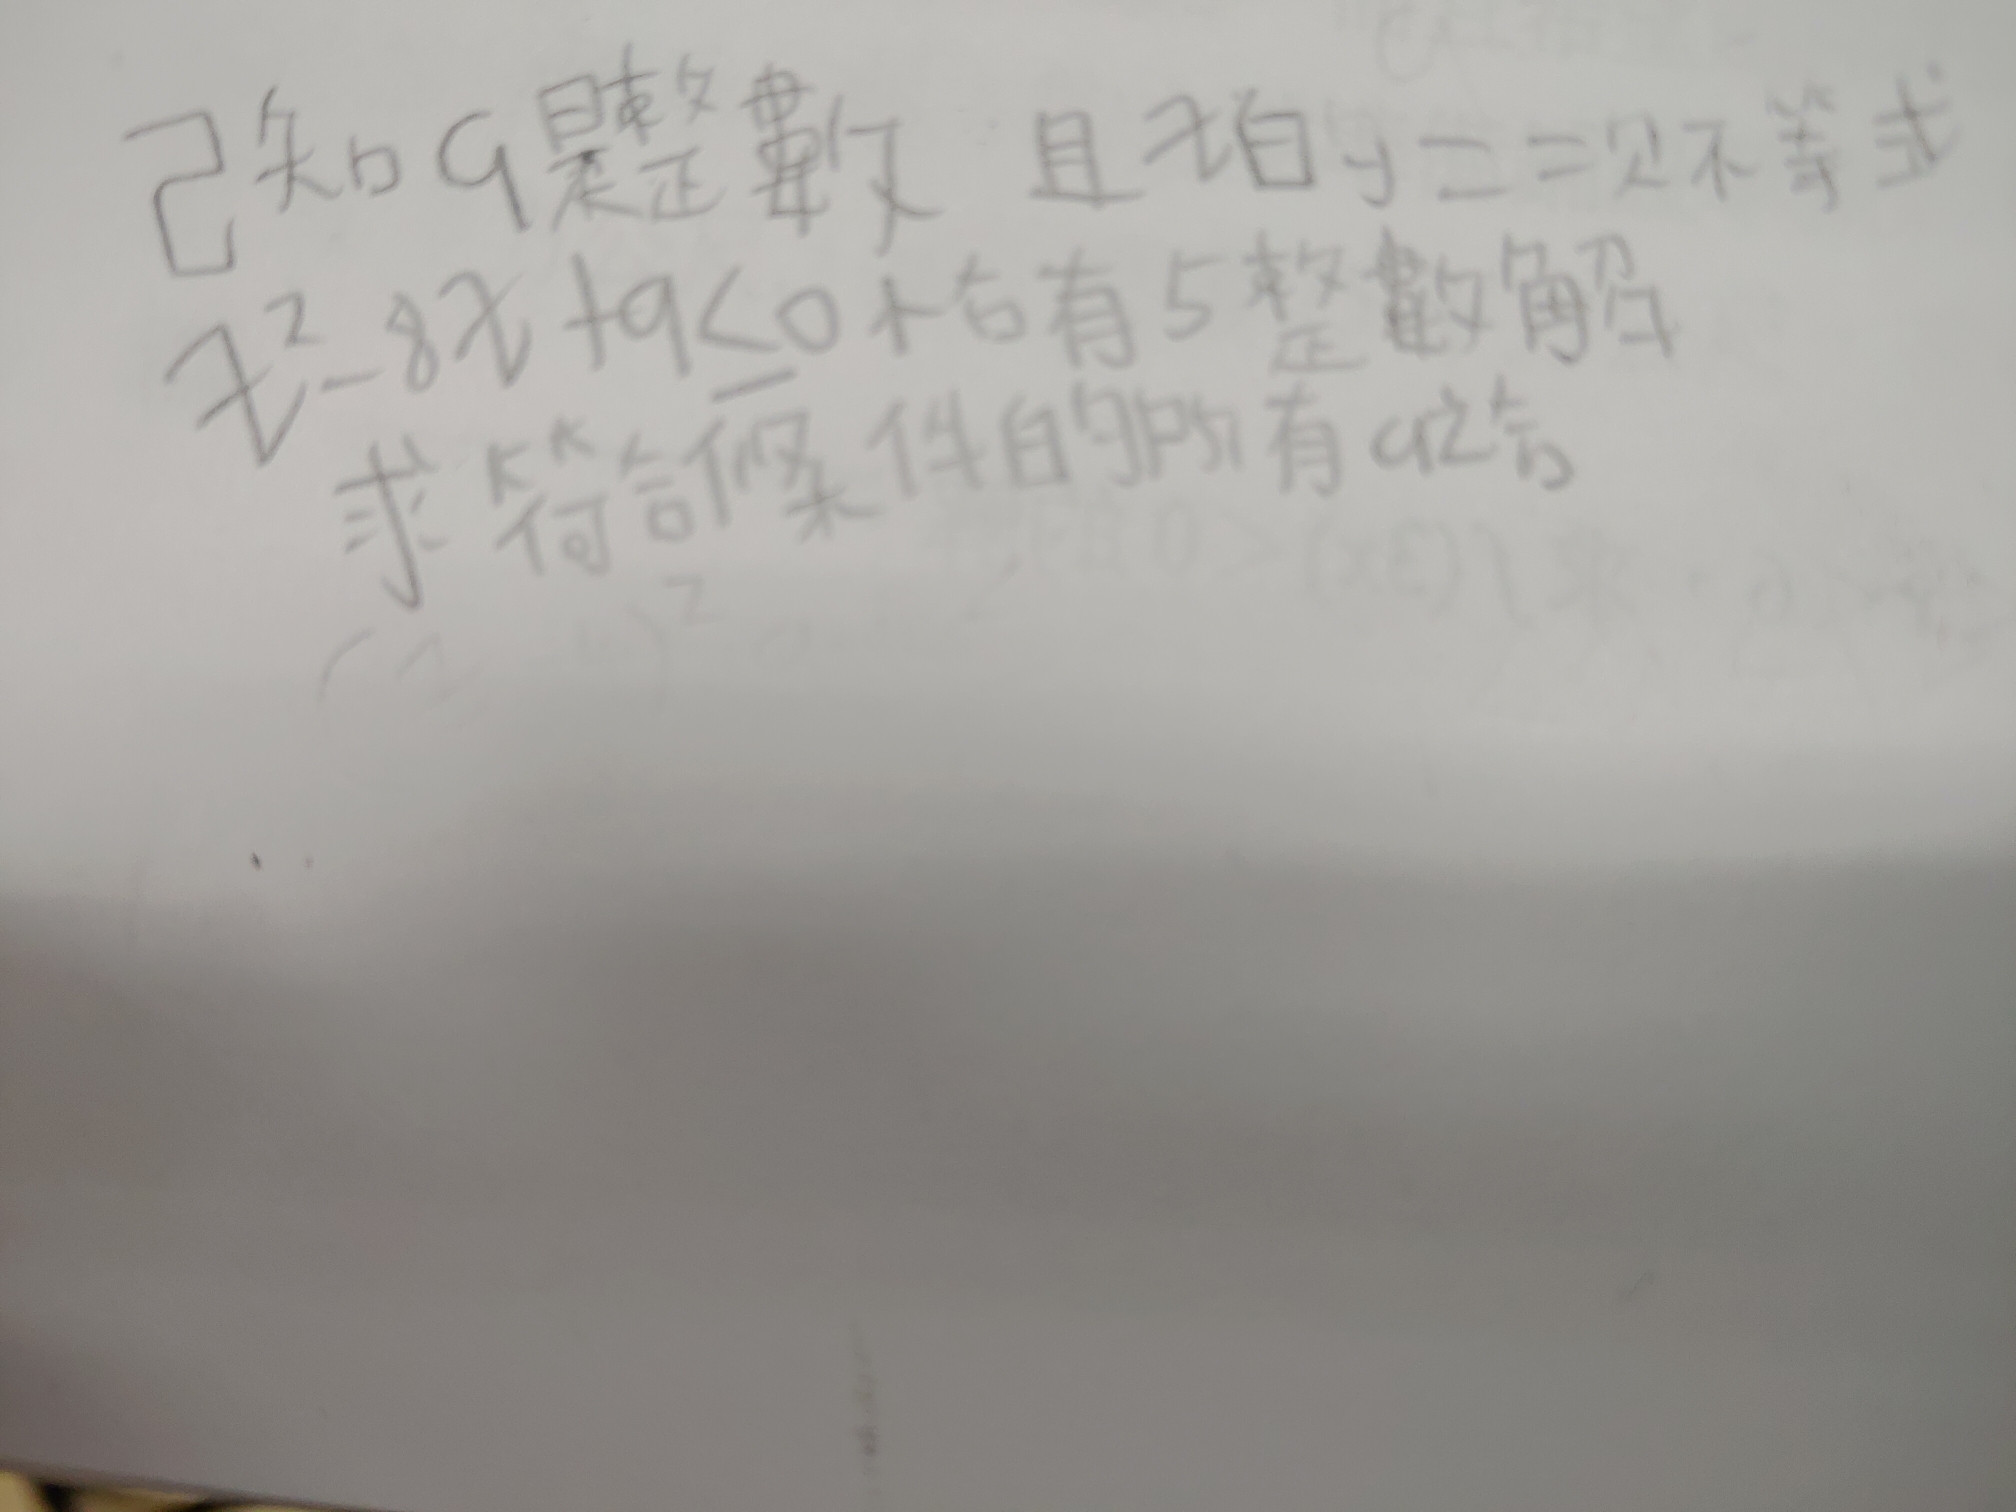 已知a是整數 且x的y二=次不等式
x²-8x+a≤0恰有5整數解
求符合條件的所有a之和